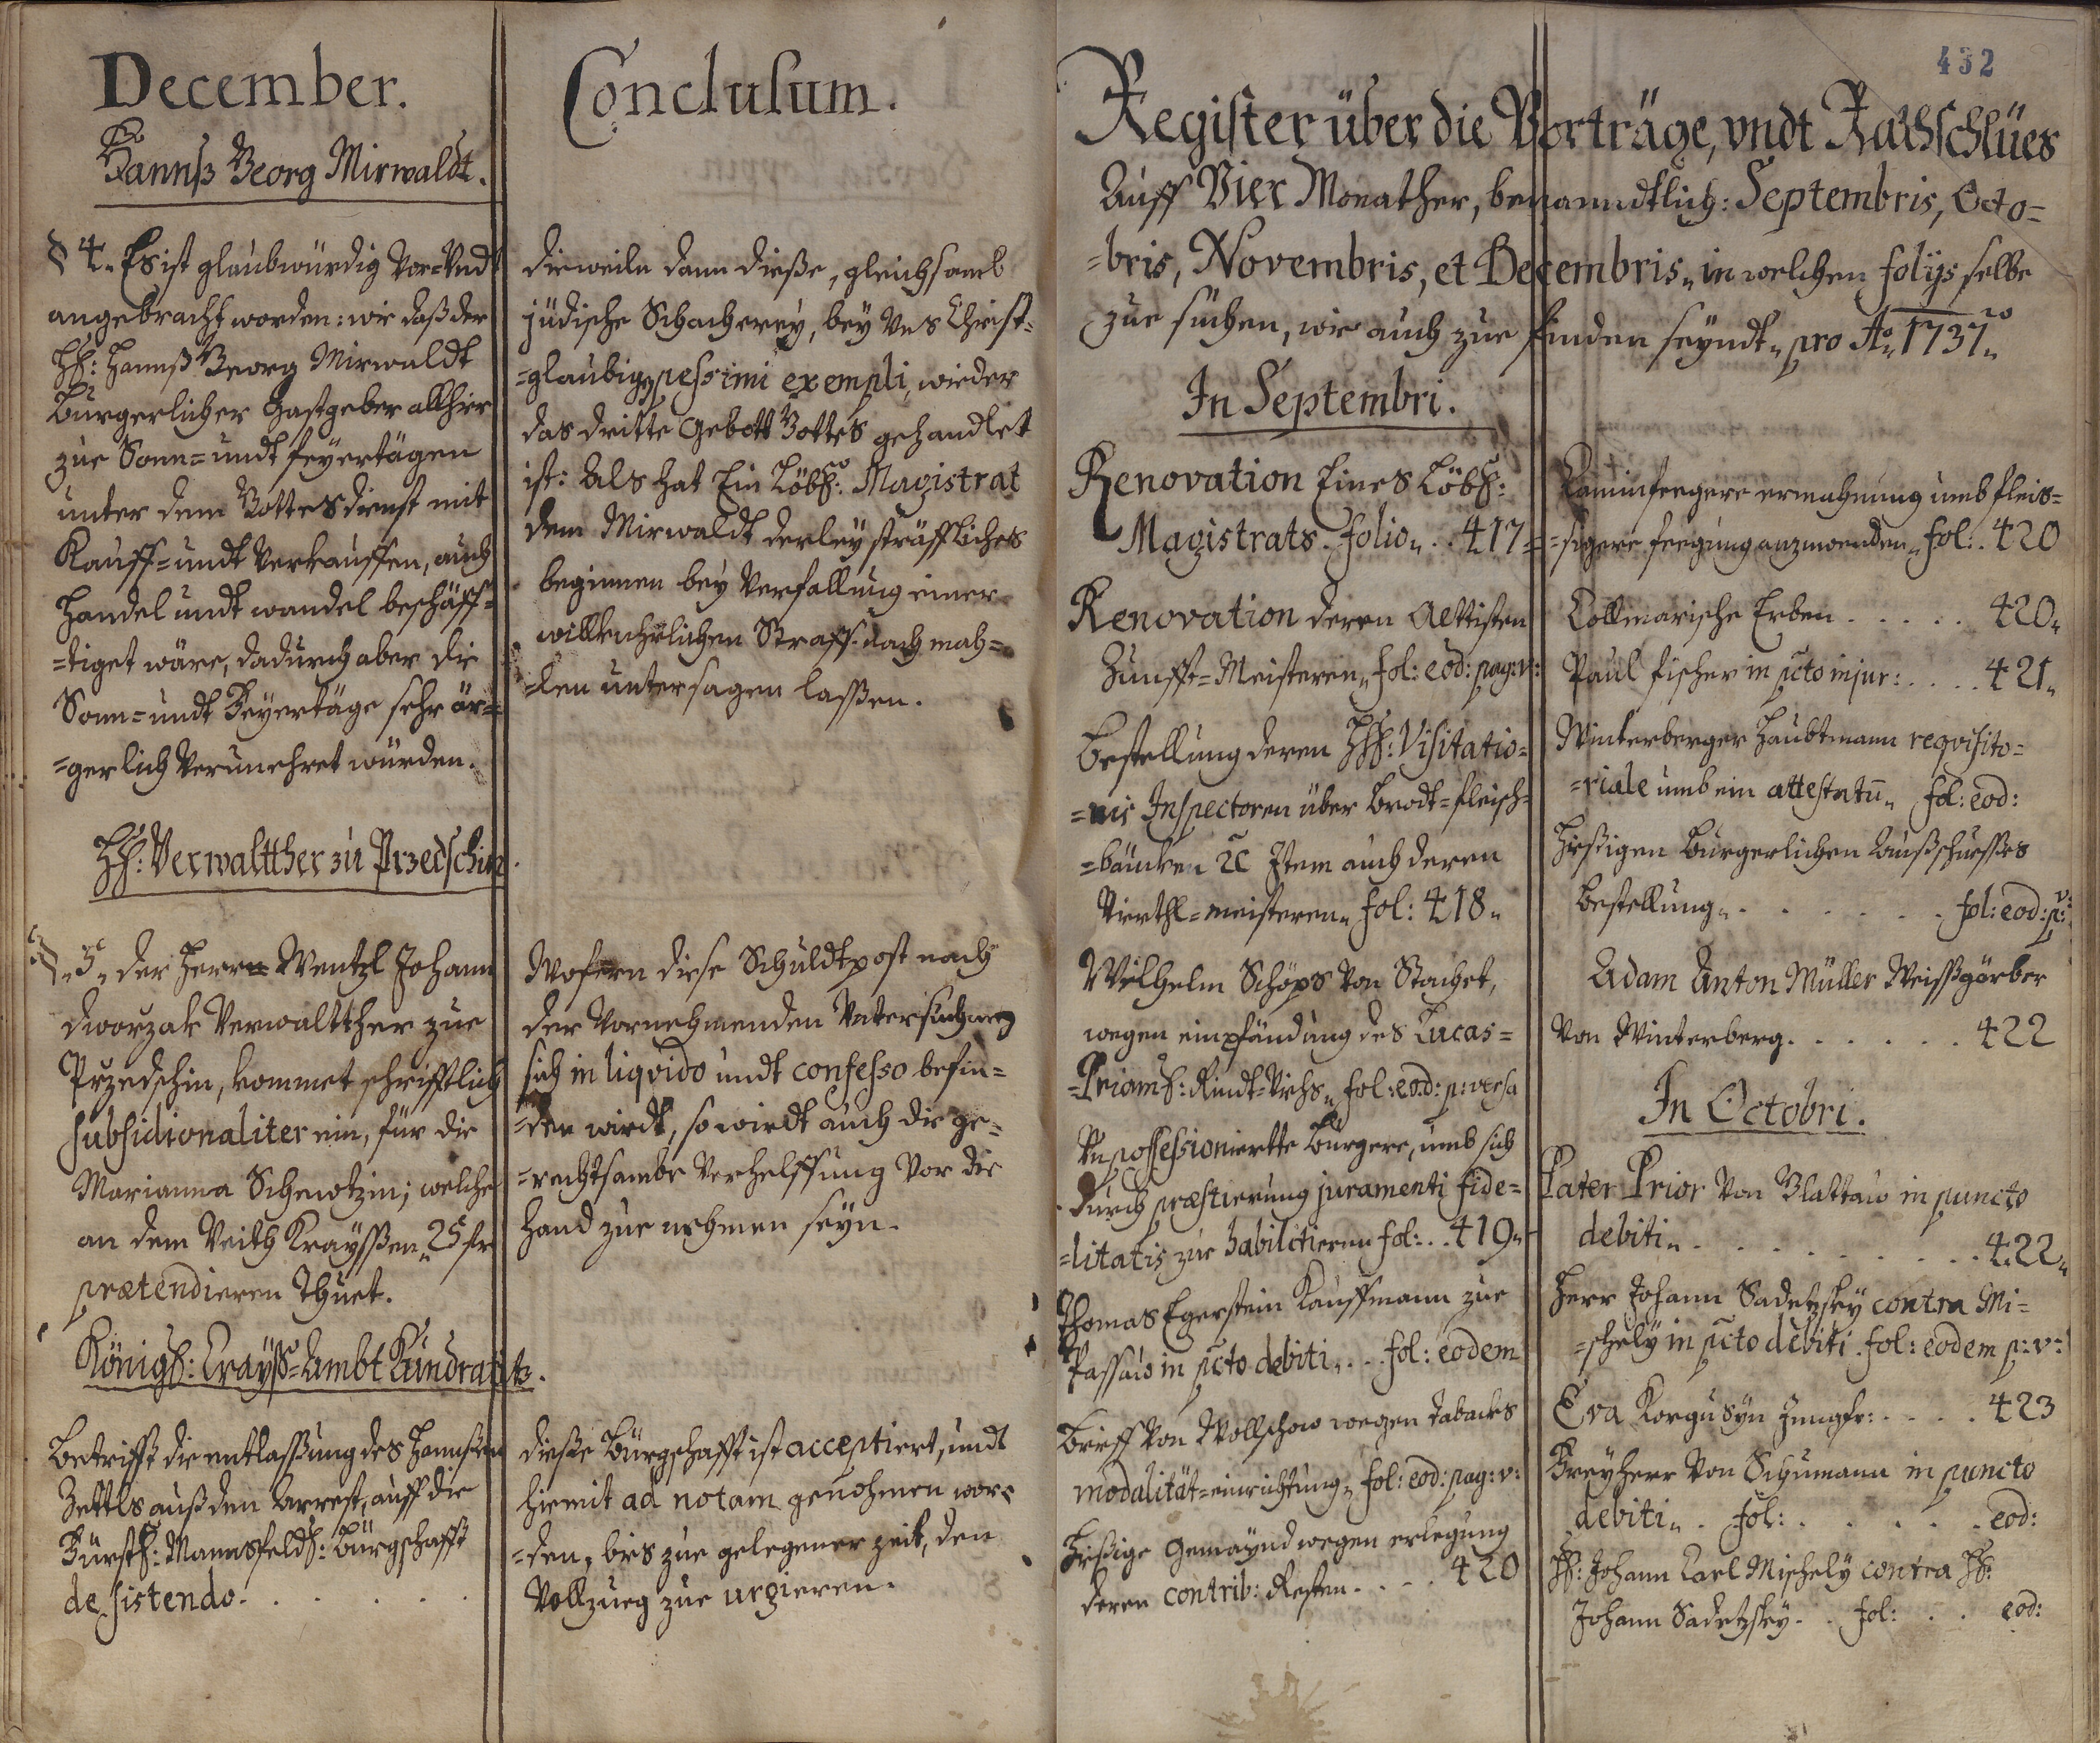 December.
Hannß Georg Mirwaldt.
§ 4. Es ist glaubwürdig vor- Undt
angebracht worden: wie daß der
H: Hannß Georg Mirwaldt
Burgerlicher Gastgeber allhier
zue Sonn= undt Feyertägen
unter dem Gottesdienst mit
Kauff= undt Verkauffen, auch
Handel undt wandel beschäff=
=tiget wäre, dadurch aber die
Sonn= undt Feyertäge sehr är=
=gerlich verunehret würden.
HH: Verwaltther zu Przedschin.
§ 5. der Herrn Wentzl Johann
Dworzak Verwaltther zue
Przedschin, kommet schrifftlich
subsidionaliter ein, für die
Marianna Schewtzin; welche
an dem Veith Krayssen 25 fr
prætendieren thuet.
Königl: Crayß=Ambt Kundratitz.
Betrifft die entlassung des Hannßen
Zettls auß den Arrest, auff die
Fürstl: Mannsfeldl: Bürgschafft
de sistendo. . . . . .
Conclusum.
dieweiln dann dieße, gleichsamb
jüdische Schacherey, bey Uns Christ=
=glaubigen pessimi exempli, wieder
das dritte Gebott Gottes gehandlet
ist: Als hat Ein Löbl: Magistrat
dem Mirwaldt derley sträffliches
beginnen bey Verfallung einer
willkuhrlichen Straff nach mah=
=len untersagen lassen.
Wofern diese Schuldtpost nach
der vornehmenden Untersuchung
sich in liqvido undt confesso befin=
=den wirdt, so wirdt auch die ge=
=rechtsambe Verhelffung vor die
Hand zue nehmen seyn.
dieße Bürgschafft ist acceptiert, undt
hiemit ad notam genohmen wor=
=den, bis zue gelegener zeit, den
Vollzueg zue urgieren.
432
Register über die Vorträge, vndt Rathschlües
Auff Vier Monather, benanndtlich: Septembris, Octo=
=bris, Novembris, et Decembris, in welchen folijs selbe
zue suchen, wie auch zue finden seyndt, pro Ao 1737.
In Septembri.
Renovation Eines Löbl:
Magistrats. folio . . 417
Renovation deren Aeltisten
Zunfft=Meisteren, fol: eod: pag: v:
Bestellung deren HH: Visitatio=
=nis Inspectoren über Brodt=fleisch=
=bäncken &c Item auch deren
Vierthl=meisteren, fol: 418.
Wilhelm Schöps von Stachet,
wegen einpfändung des Lucas=
=Priamß: Rindt=Viehs, fol: eod: p: versa
Un possessionierte Bürgere, umb sich
durch præstierung juramenti fide=
=litatis zue habilitieren fol: . . 419.
Thomas Egerstein Kauffmann zue
Passau in pcto debiti, . . fol: eodem
Brieff von Wollschow wegen tabacks
modalität=einrichtung, fol: eod: pag: v:
Hießige Gemaynd wegen erlegung
deren contrib: Resten. . . . 420
Caminfeegere ermahnung umb fleis=
=sigere feegung anzuwenden, fol: . 420
Collmarische Erben . . . . . 420.
Paul Fischer in pcto injur: . . . . 421.
Winterberger Haubtmann reqvisito=
=riale umb ein attestatū, fol: eod:
Hießigen Burgerlichen Außschusses
bestellung, . . . . . . . fol: eod: p: v:
Adam Anton Müller Weißgärber
von Winterberg. . . . . . . 422
In Octobri.
Pater Prior von Glattau in puncto
debiti, . . . . . . . . . . 422.
Herr Johann Sadetzky contra Mi=
=schely in pcto debiti. fol: eodem p: v:
Eva Korgusyn Jungfr: . . . . 423
Freyherr von Schumann in puncto
debiti, . fol: . . . . . . eod:
H: Johann Carl Mischely contra H:
Johann Sadetzky. . fol: . . eod: